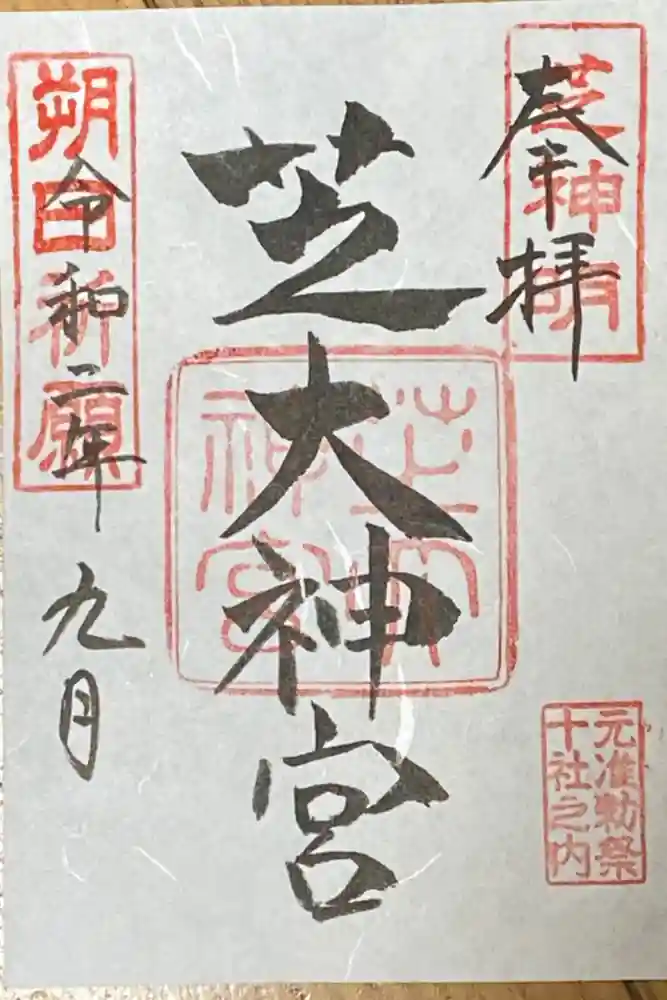 奉拝
芝神明
芝大神宮
芝大
神宮
朔日祈願
令和二年
九月
元准勅祭
十社之内